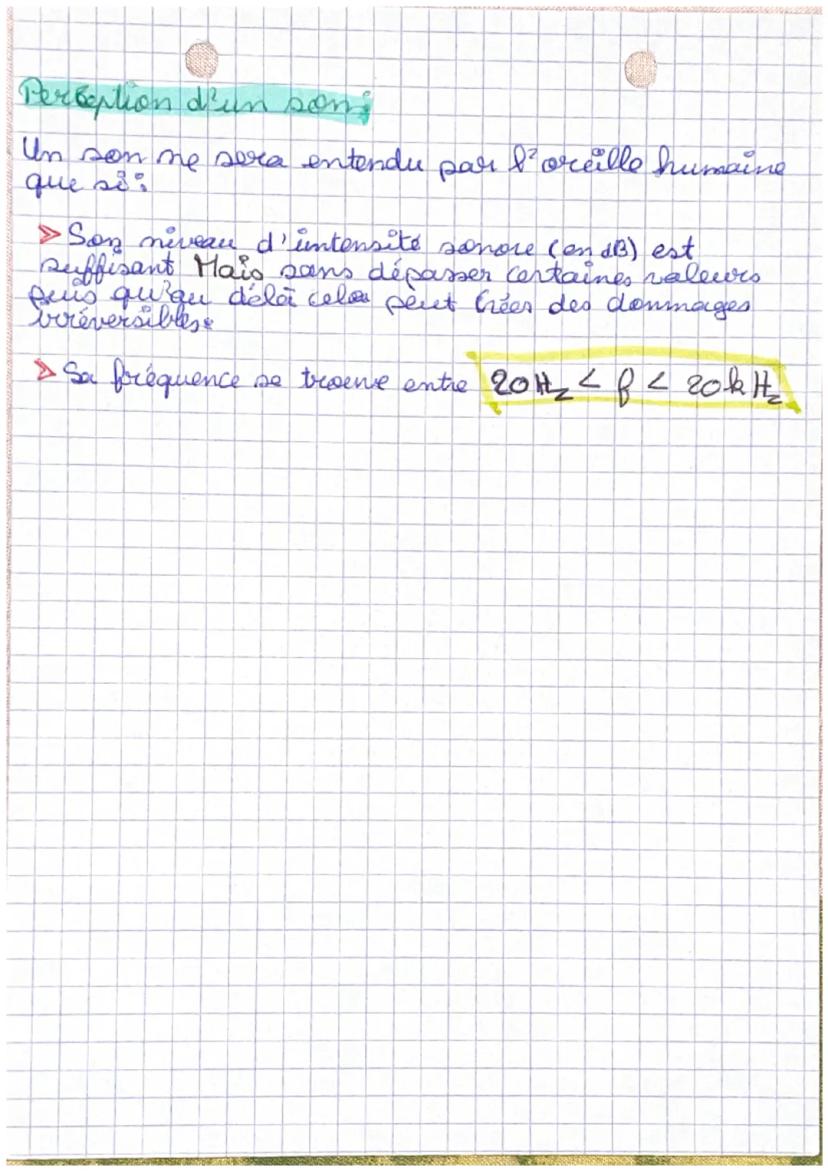 Perception d'un son :
Un son ne sera entendu par l'oreille humaine
que si :
> Son niveau d'intensité sonore (en dB) est
suffisant Mais sans dépasser certaines valeurs
puis qu'au délà cela peut créer des dommages
irréversibles.
> Sa fréquence se trouve entre 20 Hz < f < 20 k Hz